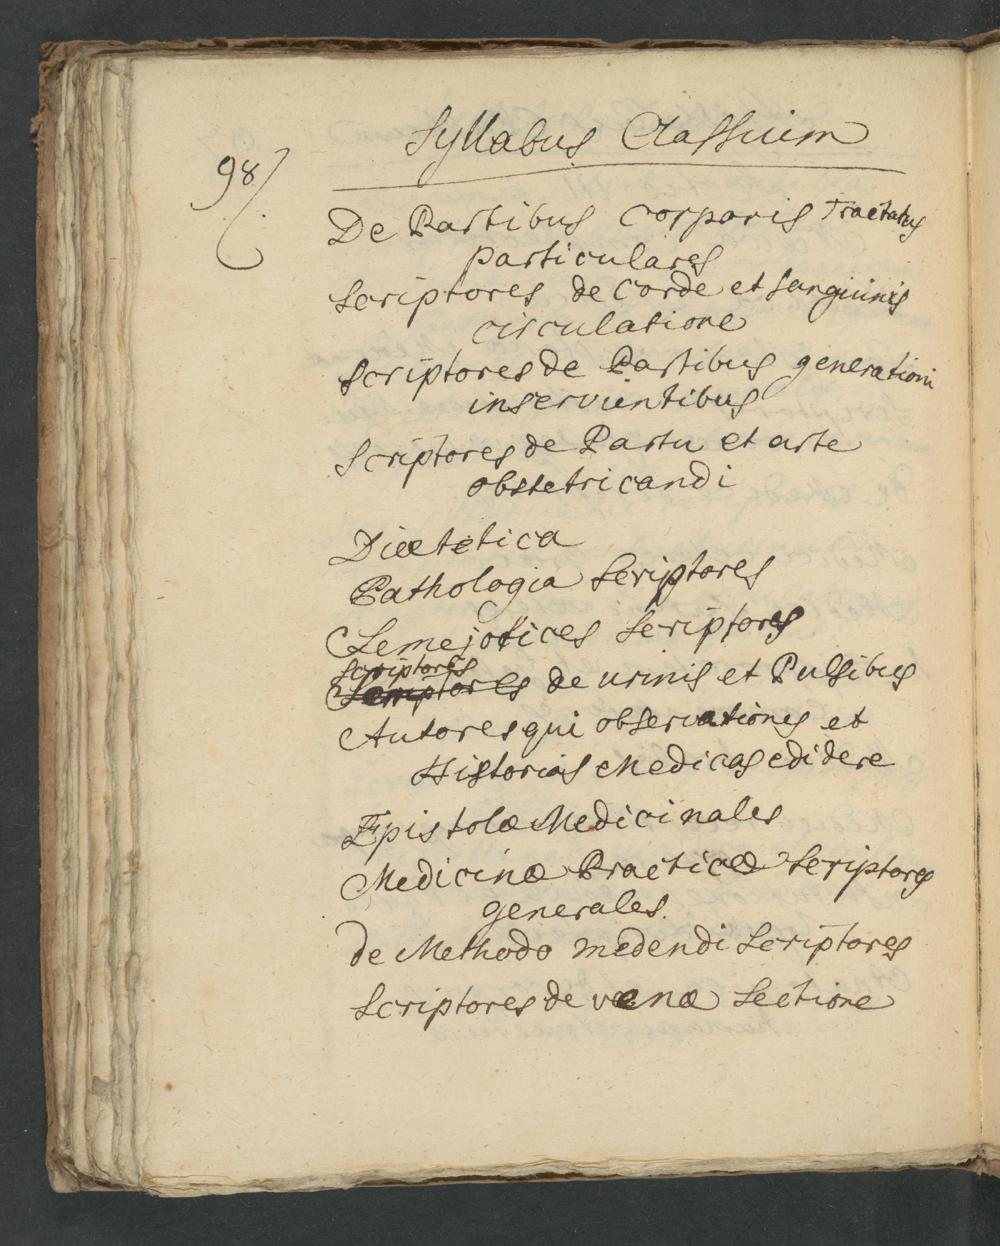 Syllabus Classium
98
De Partibus corporis Tractatus
particulares
Scriptores de Corde et Sanguinis
circulatione
Scriptores de Partibus generationi
inservientibus
Scriptores de Partu et arte
obstetricandi
Diætetica
Pathologia Scriptores
Semejotices Scriptores
scriptores
Scriptores de urinis et Pulsibus
Autores qui observationes et
Historias Medicas edidere
Epistolæ Medicinales
Medicinæ Practicæ Scriptores
generales.
de Methodo medendi Scriptores
Scriptores de venæ Sectione